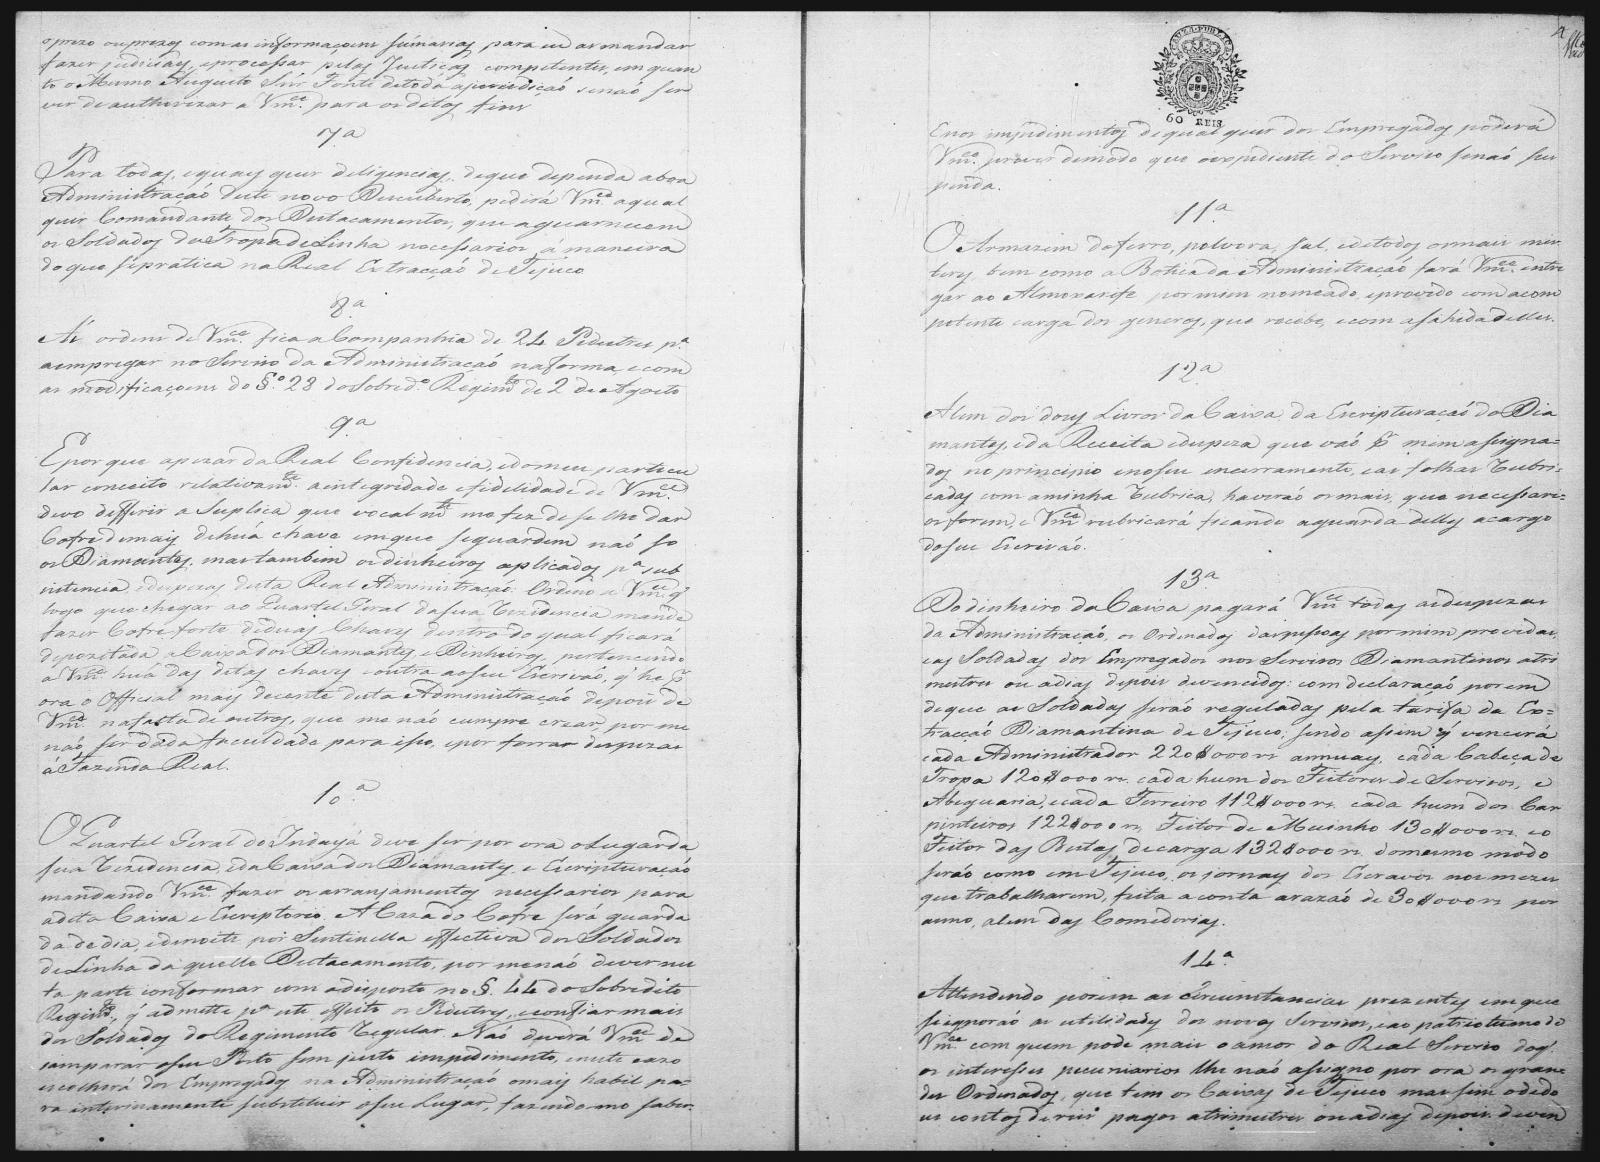 o prezo ou prezos com as informaçoens súmarias para eu as mandar
fazer judiciaes, e processar pelas Justiças competentes, em quan
to o Mesmo Augusto Snr Fonte de toda a jurisdicaõ senaõ ser
vir de authorizar a Vmce. para os ditos fins
7ª
Para todas, equaes quer deligencias, de que dependa a boa
Administraçaõ deste novo Descuberto, pedirá Vmce a qual
quer Comandante dos Destacamentos, que a guarnecem
os Soldados da Tropa de Linha necessarios, á maneira
do que se pratica na Real Extracçaõ de Tejuco
8ª
Ás ordens de Vmce. fica a Companhia de 24 Pedestres pª
a empregar no Serviso da Administraçaõ na forma, e com
as modificaçoens do §º 28 do Sobredº Regimto de 2 de Agosto
9ª
E por que apezar da Real Confidencia, e do meu particu
lar conceito relativamte. a integridade e fidelidade de Vmce.
devo defferir a Suplica que vocalmte me fez de se lhe dar
Cofre de mais de huã chave em que se guardem naõ so
os Diamantes, mas tambem os dinheiros aplicados pª sub
sistencia, e despezas desta Real Administraçaõ: Ordeno a Vmce. q'
logo que chegar ao Quartel Geral da sua Rezidencia mande
fazer Cofre forte de duas Chaves dentro do qual ficará
depozitada a Caixa dos Diamantes, e Dinheiros, pertencendo
a Vmce huã das ditas chaves, e outra ao seu Escrivaõ, q' he pr
ora o Official mais decente desta Administraçaõ depois de
Vmce na falta de outros, que me naõ cumpre crear, por me
naõ ser dada faculdade para isso, e por forrar despezas
á Fazenda Real.
10.ª
O Quartel Geral do Indayá deve ser por ora o Lugar da
sua Rezidencia, e da Caixa dos Diamantes, e Escripturaçaõ
mandando Vmce fazer os arranjamentos necessarios para
a dita Caixa e Escriptorio. A Caza do Cofre será guarda
da de dia, e de noite por Sentinella effectiva dos Soldados
de Linha da quelle Destacamento, por me naõ dever nes
ta parte conformar com o disposto no §. 44 do Sobredito
Regimto., q' admitte pª este effeito os Pedestres, e confiar mais
dos Soldados do Regimento Regular. Naõ deverá Vmce de
samparar o seu Posto sem justo impedimento, e neste cazo
escolherá dos Empregados na Administraçaõ o mais habil pa-
ra interinamente substituir o seu Lugar, fazendo mo saber.
CAUZA PUBLICA
60 REIS
2
E nos impedimentos de qual quer dos Empregados poderá
Vmce. prover de modo que o expediente do Serviso senaõ sus
penda.
11ª
O Armazem do ferro, polvora, sal, e de todos os mais mis
teres bem como a Botica da Administraçaõ fará Vmce. entre
gar ao Almoxarife por mim nomeado, e provido com a com
petente carga dos generos, que recebe, e com a sahida delles.
12ª
Alem dos dous Livros da Caixa da Escripturaçaõ do Dia
mantes, e da Receita e despeza que vaõ pr mim assigna=
dos no principio e no seu encerramento, e as folhas Rubri-
cadas com a minha Rubrica, haveraõ os mais, que necessari=
os forem, e Vmce rubricará ficando a guarda delles a cargo
do seu Escrivaõ.
13ª
Do dinheiro da Caixa pagará Vmce todas as despezas
da Administraçaõ, os Ordenados das pessoas por mim providas,
e as Soldadas dos Empregados nos Servisos Diamantinos a tri
mestres ou a dias depois de vencidos: com declaraçaõ porem
de que as Soldadas seraõ reguladas pela tarifa da Ex=
tracçaõ Diamantina de Tejuco, sendo assim q' vencerá
cada Administrador 220$000 rs annuaes, cada Cabeça de
Tropa 120$000 rs. cada hum dos Feitores de Servisos, e
Abeguaria, e cada Ferreiro 112$000 rs. cada hum dos Car
pinteiros 122$000 rs, Feitor de Muinho 130$000 rs. e o
Feitor das Bestas de carga 132$000 rs. do mesmo modo
seraõ como em Tejuco, os jornaes dos Escravos nos mezes
que trabalharem, feita a conta a razaõ de 30$000 rs por
anno, alem das Comedorias.
14.ª
Attendendo porem as circunstancias prezentes em que
se ignoraõ as utilidades dos novos Servisos, e ao patriotismo de
Vmce. com quem pode mais o amor do Real Serviso doq'
os interesses pecuniarios lhe naõ assigno por ora os gran=
des Ordenados, que tem os Caixas de Tejuco mas sim o de do
us contos de reis pagos a trimestres ou a dias depois de ven